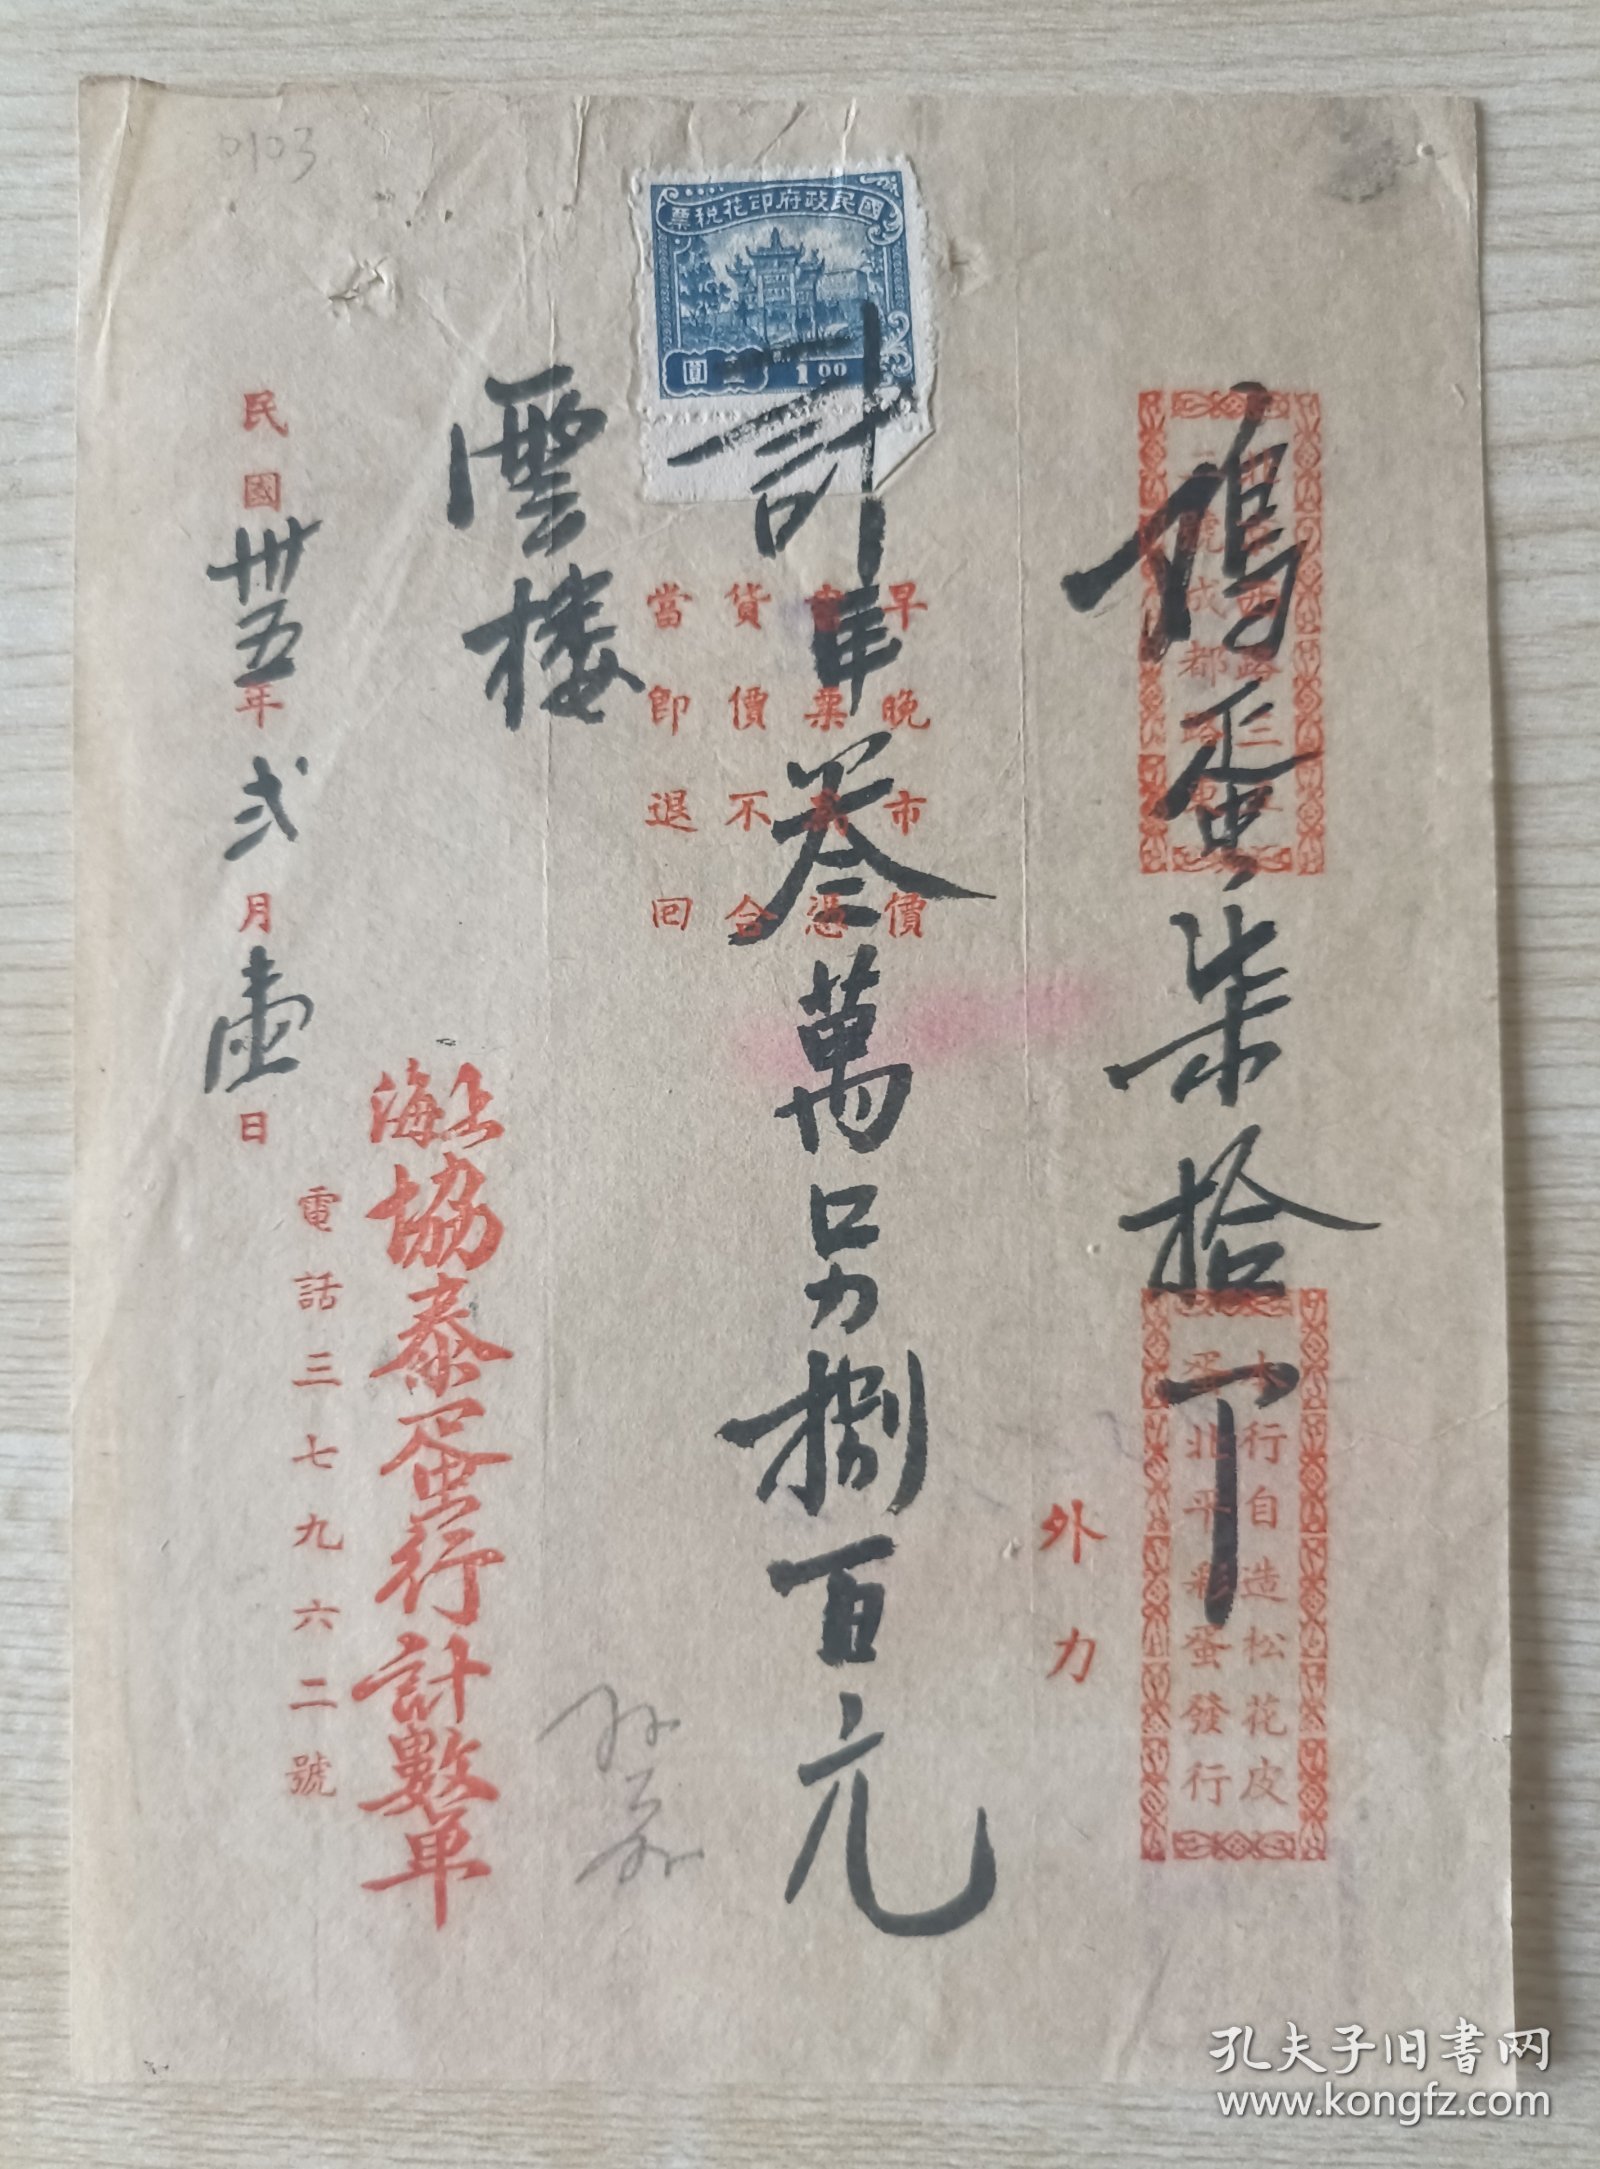 0103
國民政府印花稅票
壹圓
1.00
鴿蛋柒拾下
本行自造松花皮
蛋北平彩蛋發行
外力
早晚市價
當票為憑
貨價不合
當即退回
計
叁萬另捌百元
雲樓
上海協泰蛋行計數單
電話三七九六二號
民國卅五年弍月壹日
孔夫子旧書网
www.kongfz.com